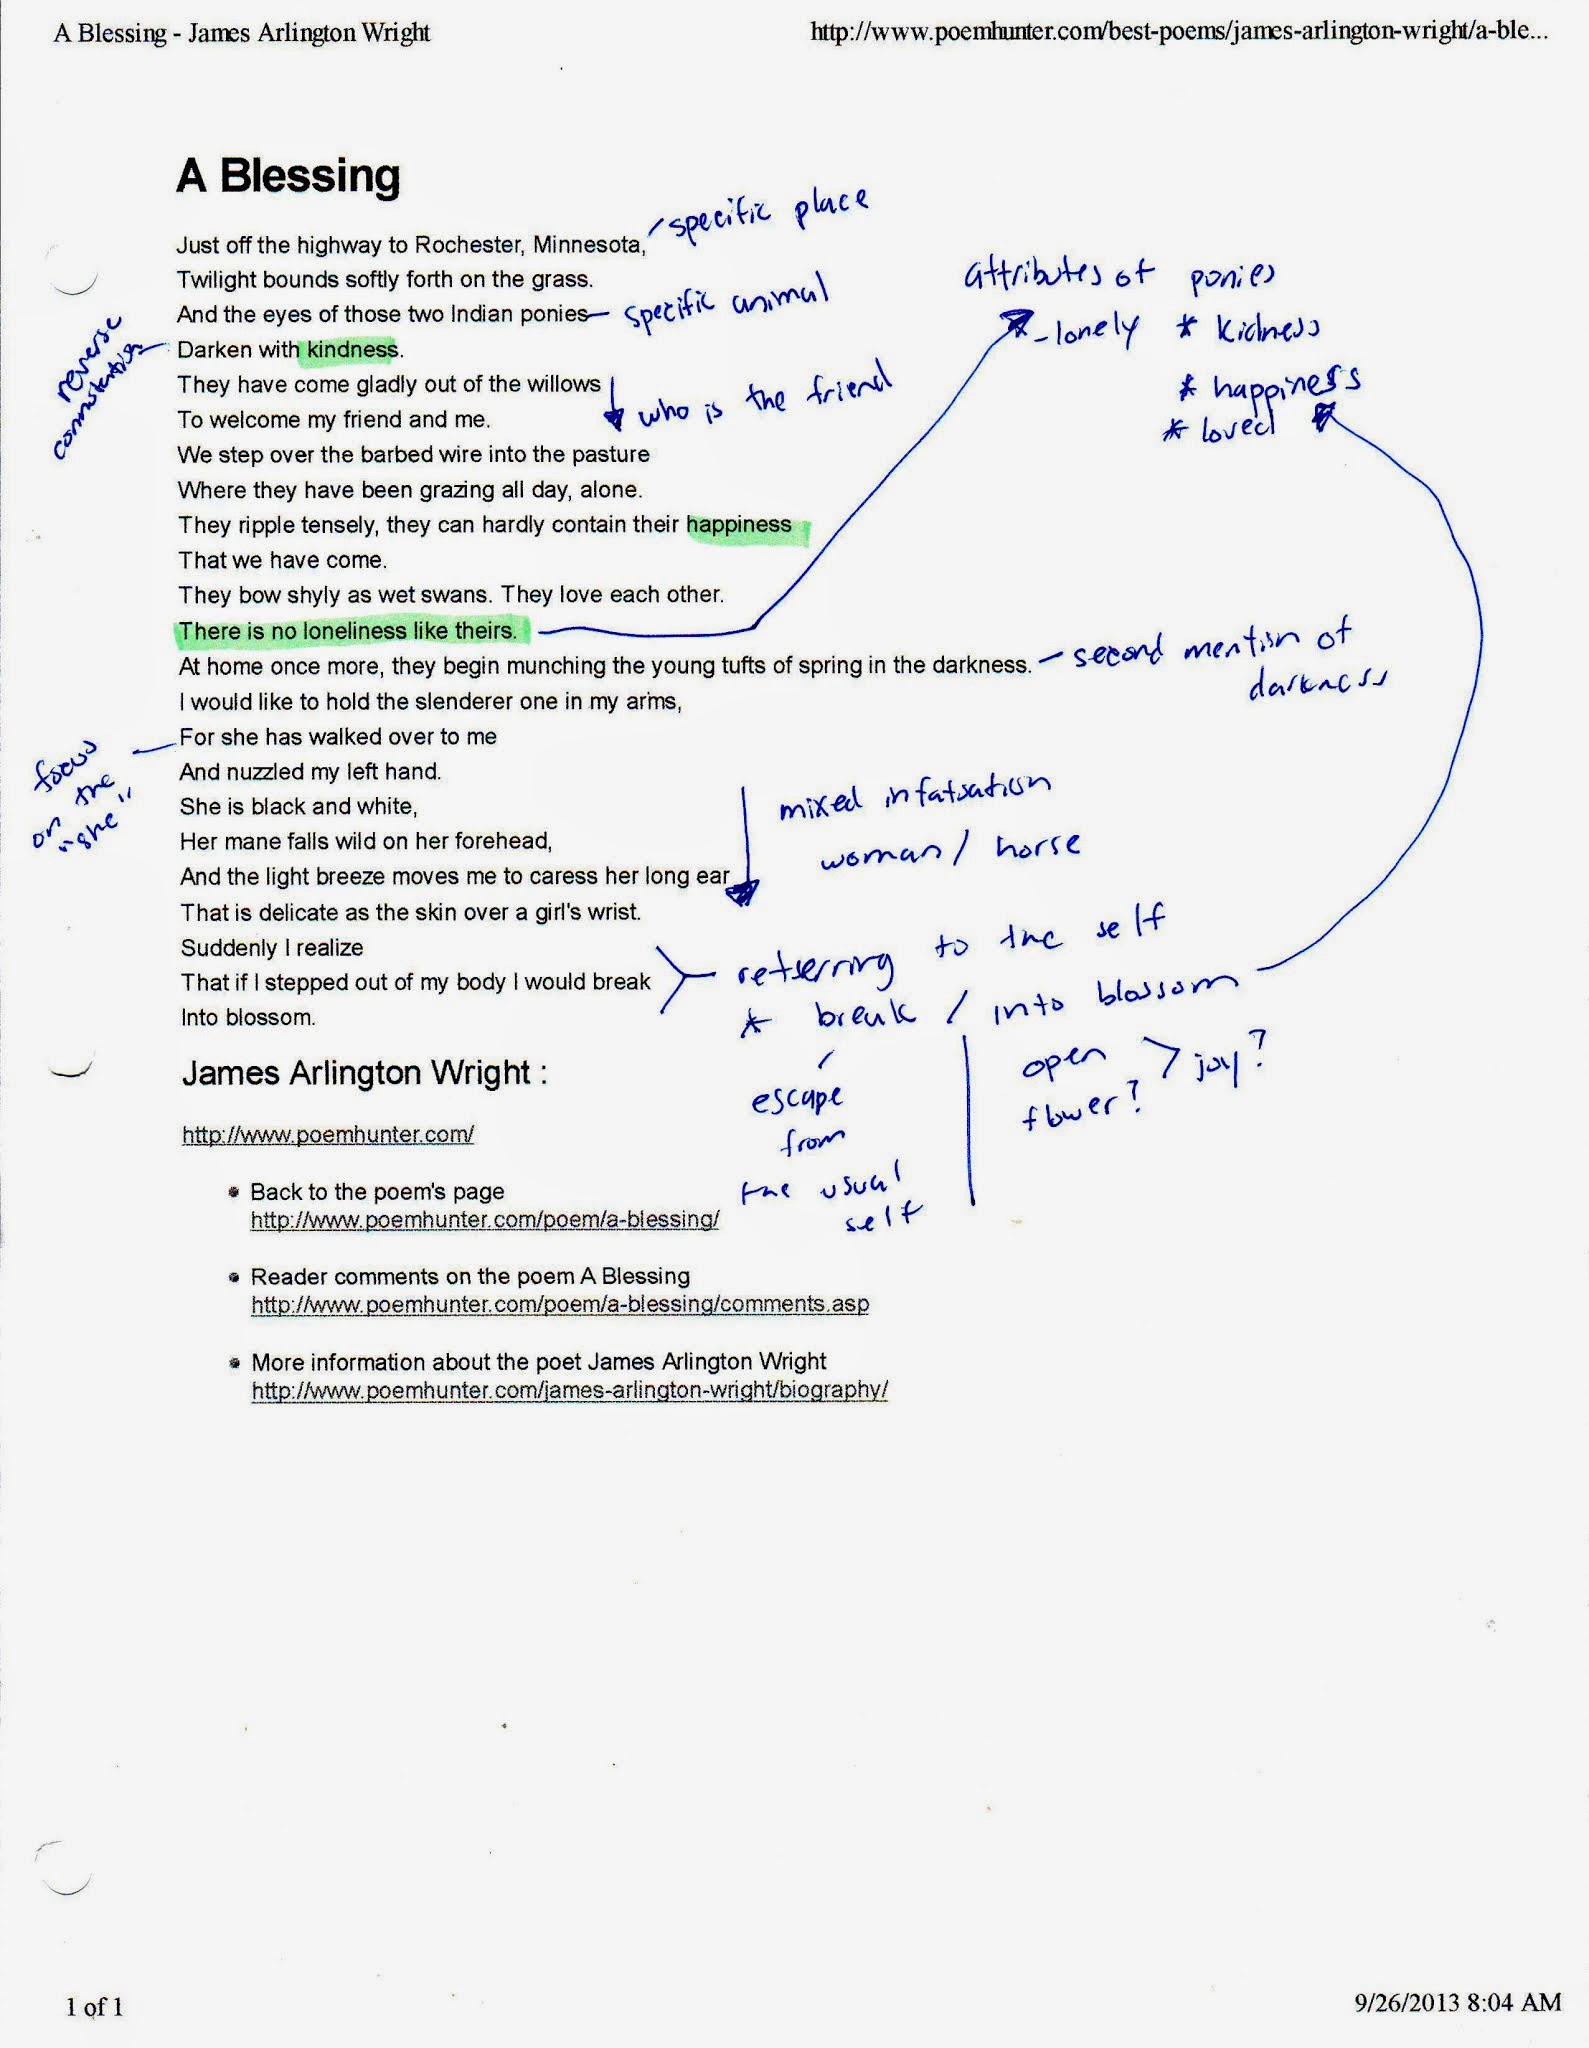 A Blessing - James Arlington Wright
http://www.poemhunter.com/best-poems/james-arlington-wright/a-ble...
A Blessing
specific place
Just off the highway to Rochester, Minnesota,
Twilight bounds softly forth on the grass.
attributes of ponies
And the eyes of those two Indian ponies
specific animal
- lonely * kidness
reverse
Darken with kindness.
* happiness
* loved
They have come gladly out of the willows
who is the friend
To welcome my friend and me.
We step over the barbed wire into the pasture
Where they have been grazing all day, alone.
They ripple tensely, they can hardly contain their happiness
That we have come.
They bow shyly as wet swans. They love each other.
There is no loneliness like theirs.
At home once more, they begin munching the young tufts of spring in the darkness.
second mention of
darkness
I would like to hold the slenderer one in my arms,
For she has walked over to me
focus
on the
"she"
And nuzzled my left hand.
She is black and white,
mixed infatuation
woman / horse
Her mane falls wild on her forehead,
And the light breeze moves me to caress her long ear
That is delicate as the skin over a girl's wrist.
Suddenly I realize
That if I stepped out of my body I would break
Into blossom.
to the self
* break / into blossom
escape
from
the usual
self
open
flower?
> joy?
James Arlington Wright :
http://www.poemhunter.com/
• Back to the poem's page
http://www.poemhunter.com/poem/a-blessing/
• Reader comments on the poem A Blessing
http://www.poemhunter.com/poem/a-blessing/comments.asp
• More information about the poet James Arlington Wright
http://www.poemhunter.com/james-arlington-wright/biography/
1 of 1
9/26/2013 8:04 AM